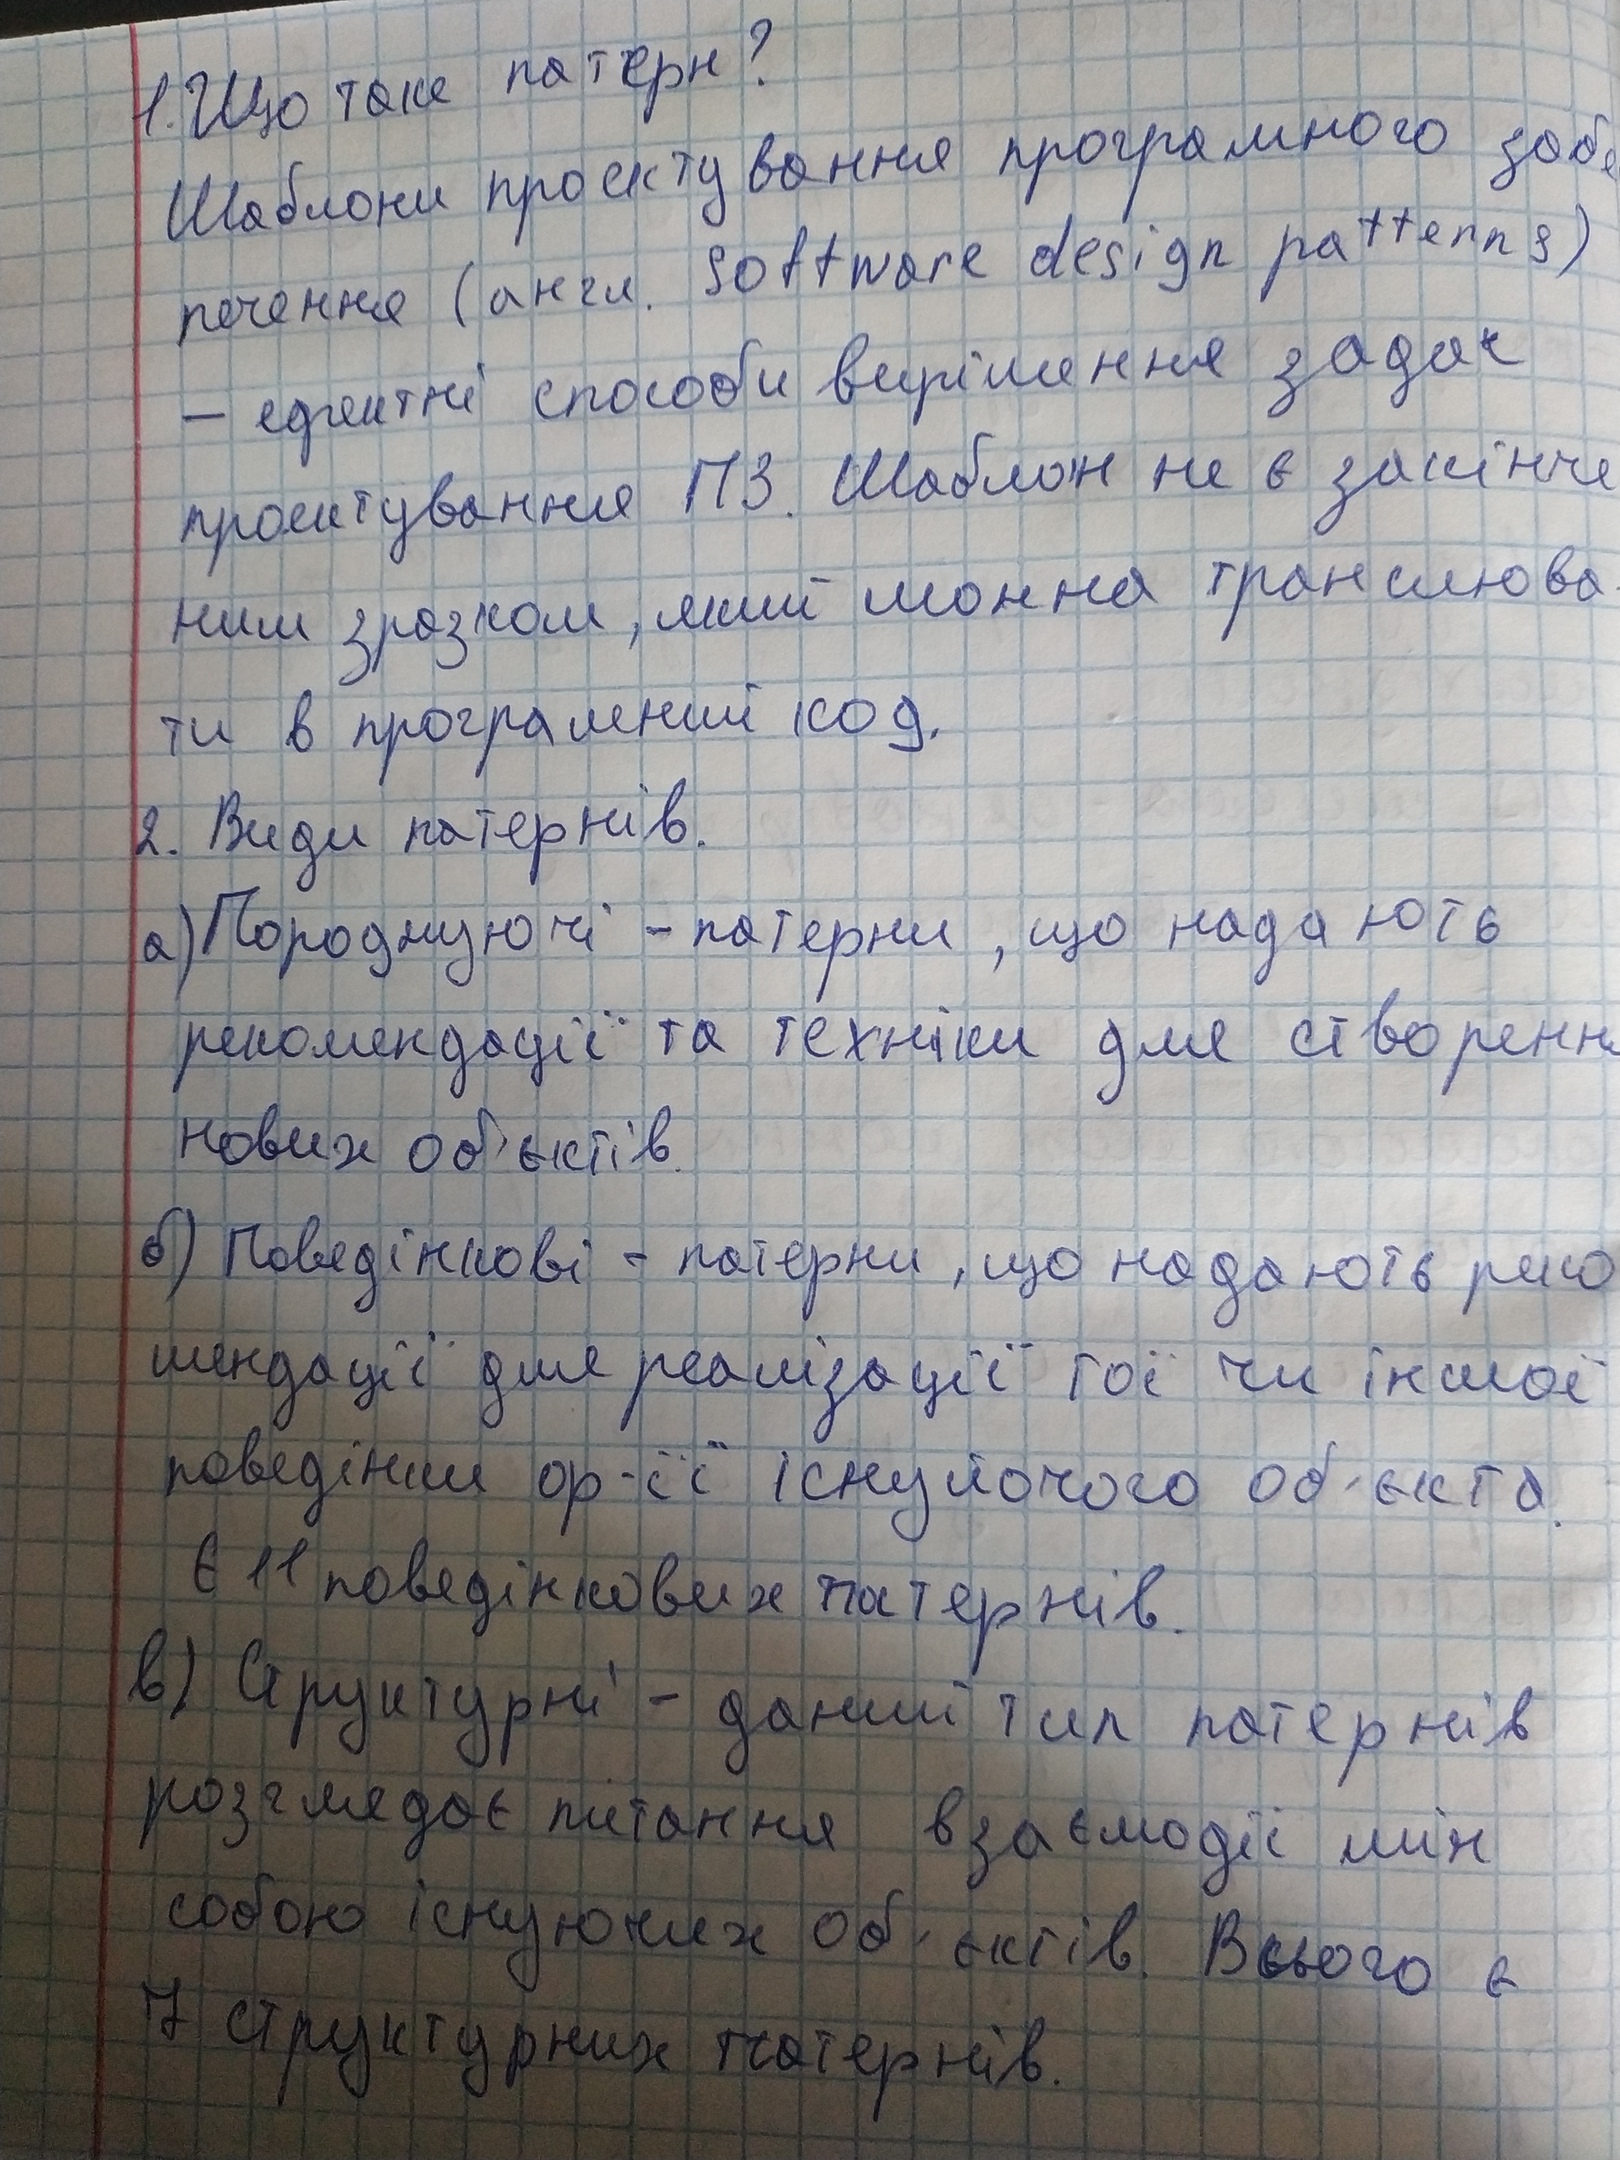 1. Що таке патерн?
Шаблони проєктування програмного забез
печення (англ. software design patterns)
– ефектні способи вирішення задач
проєктування ПЗ. Шаблон не є закінче
ним зразком, який можна транслюва
ти в програмний код.
2. Види патернів.
а) Породжуючі - патерни, що надають
рекомендації та техніки для створенн
нових об'єктів.
б) Поведінкові - патерни, що надають реко
мендації для реалізації тої чи іншої
поведінки ор-ії існуйочого об'єкта.
Є 11 поведінкових патернів.
в) Структурні - даний тип патернів
розглядає питання взаємодії між
собою існуючих об'єктів. Всього є
7 структурних патернів.